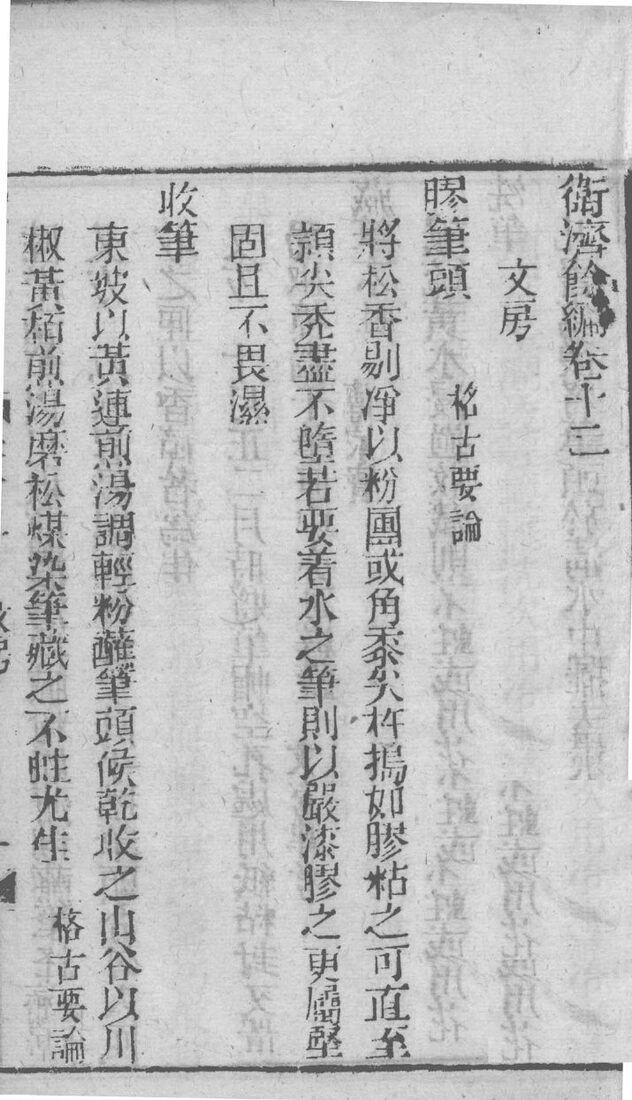 衛濟餘編卷十二
文房
膠筆頭
格古要論
將松香剔凈以粉團或角黍尖杵搗如膠粘之可直至
頴尖禿盡不墮若要着水之筆則以嚴漆膠之更屬堅
固且不畏濕
收筆
東坡以黃連煎湯調輕粉蘸筆頭候乾收之山谷以川
椒黃栢煎湯磨松煤染筆藏之不蛀尤生
格古要論